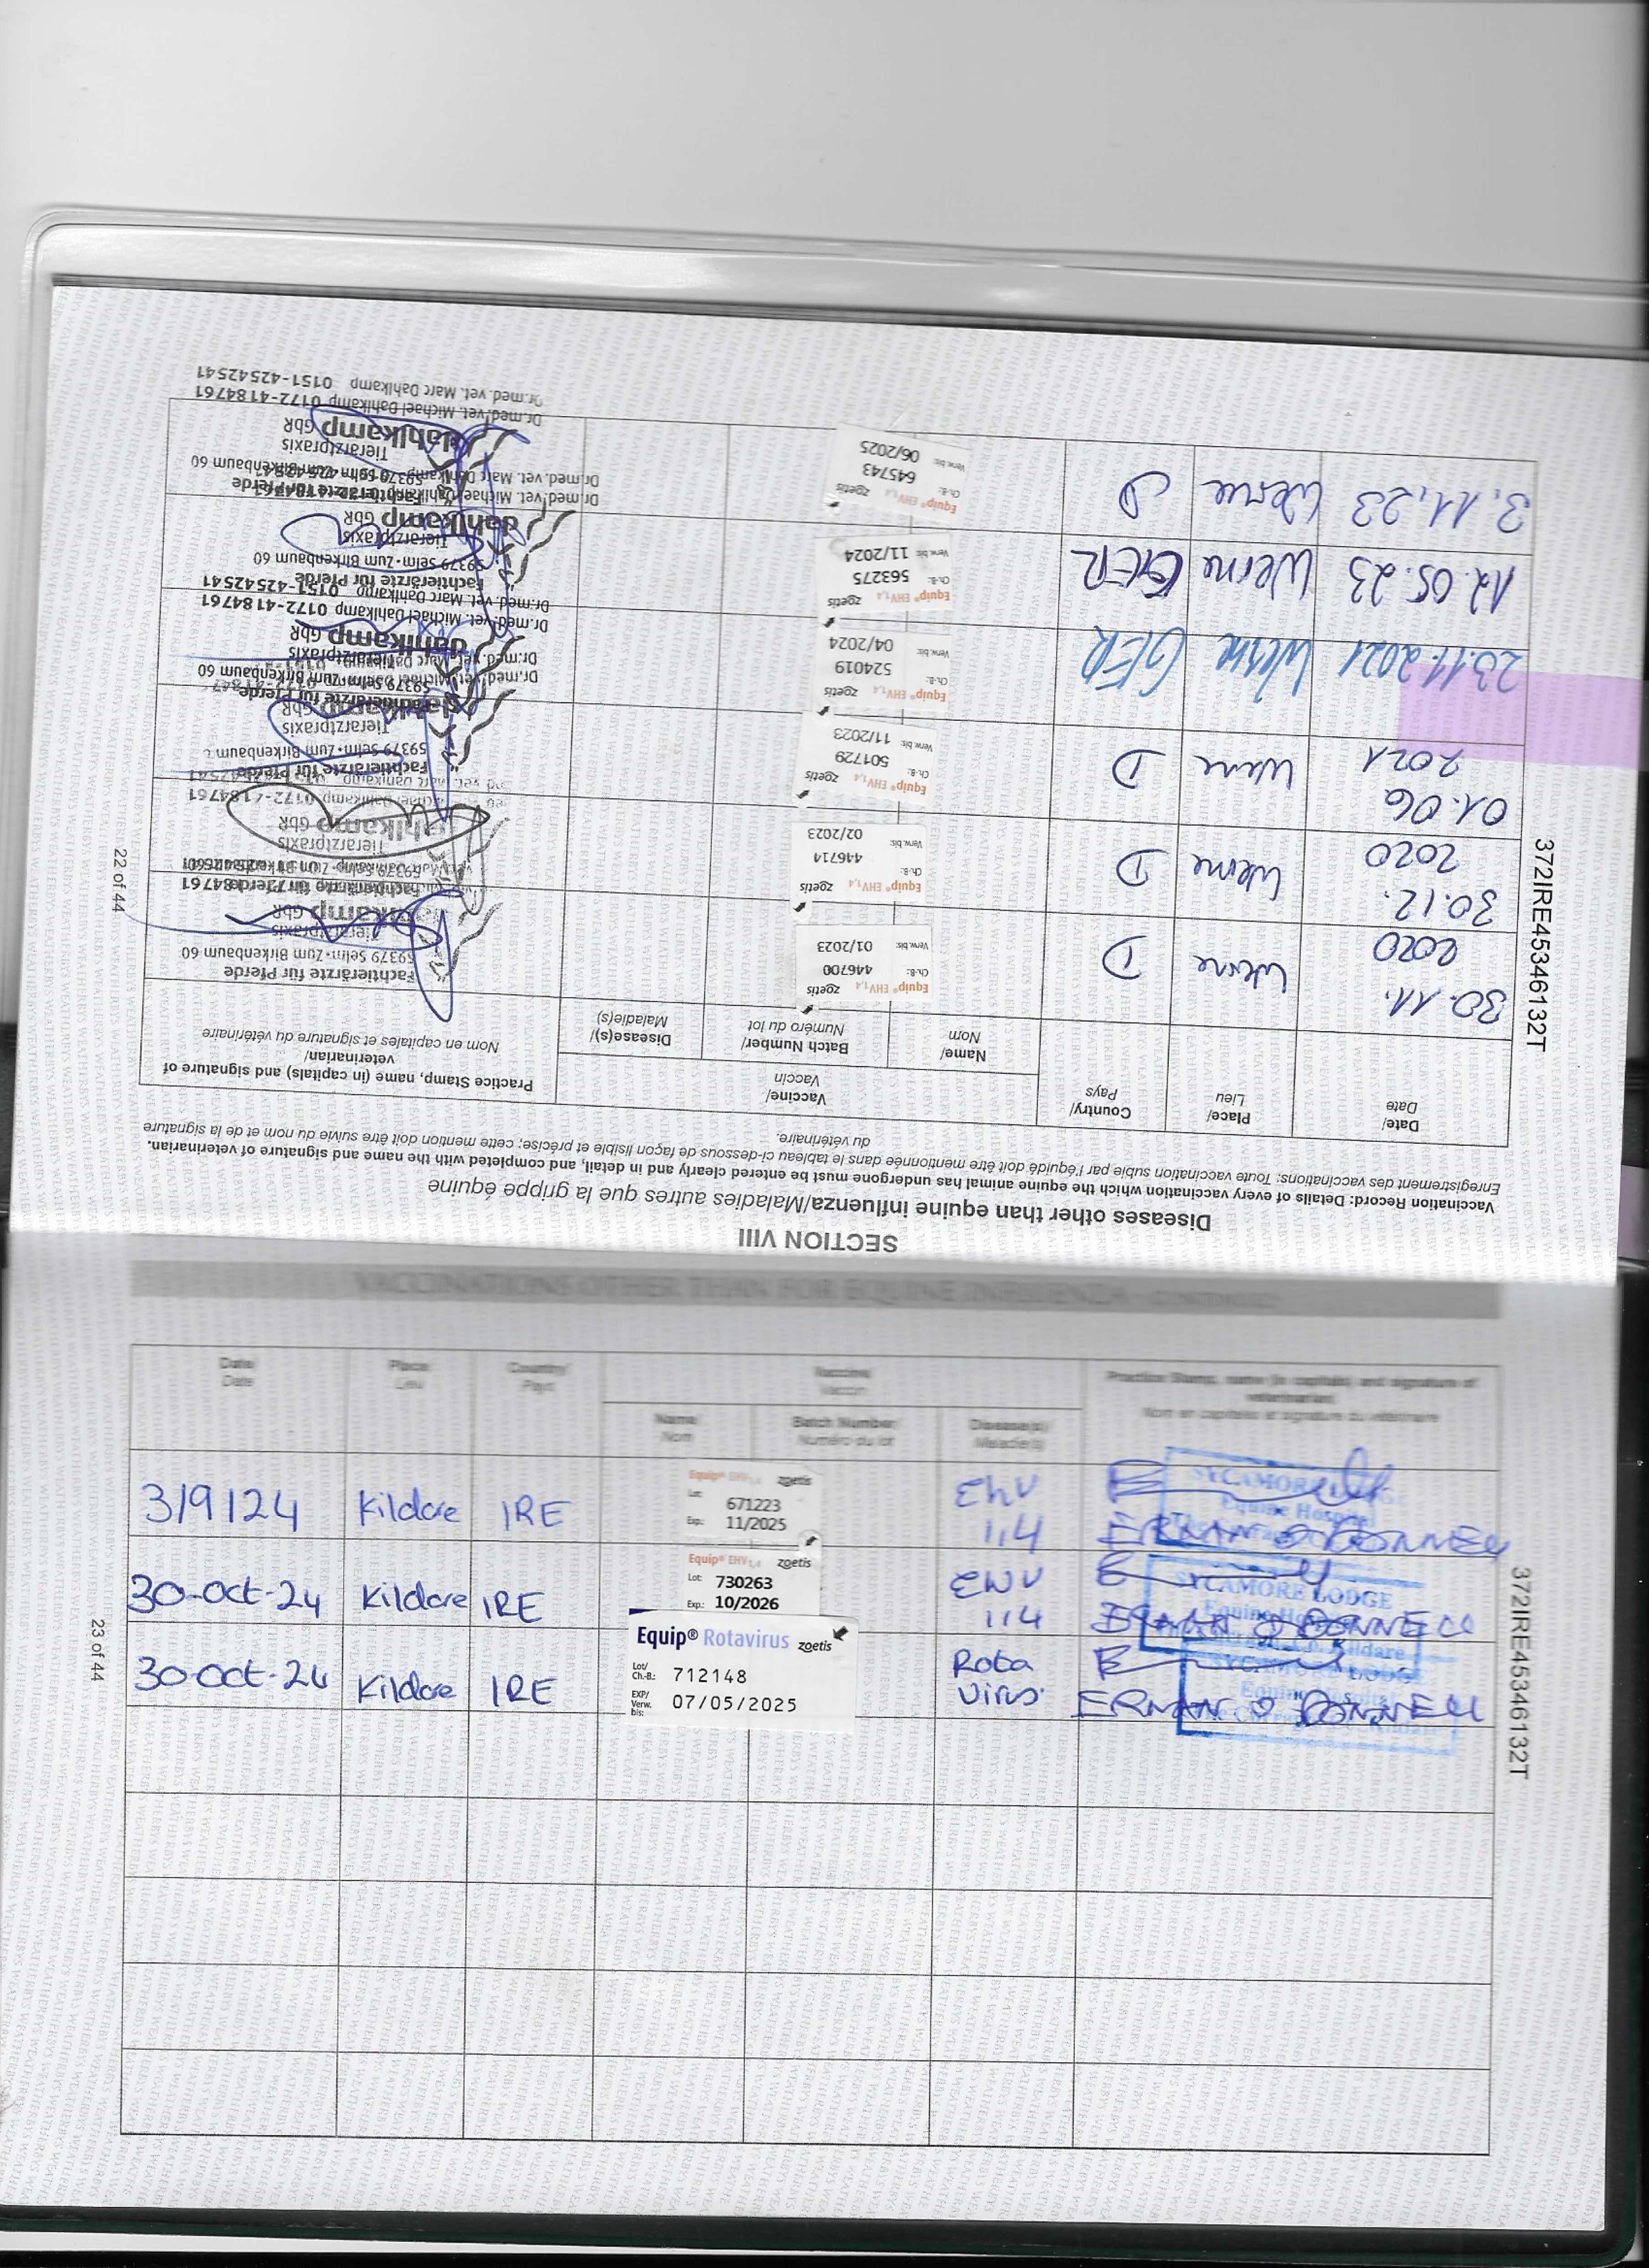 SECTION VIII
Diseases other than equine influenza/Maladies autres que la grippe équine
Vaccination Record: Details of every vaccination which the equine animal has undergone must be entered clearly and in detail, and completed with the name and signature of veterinarian.
Enregistrement des vaccinations: Toute vaccination subie par l'équidé doit être mentionnée dans le tableau ci-dessous de façon lisible et précise; cette mention doit être suivie du nom et de la signature
du vétérinaire.
Date/ Date
Place/ Lieu
Country/ Pays
Vaccine/ Vaccin
Name/ Nom
Batch Number/ Numéro du lot
Disease(s)/ Maladie(s)
Practice Stamp, name (in capitals) and signature of
veterinarian/
Nom en capitales et signature du vétérinaire
30.11. 2020 Werne D
Equip® EHV1,4 zoetis
Ch.-B.: 446700
Verw. bis: 01/2023
Fachtierärzte für Pferde
59379 Selm · Zum Birkenbaum 60
Tierarztpraxis
dahlkamp GbR
30.12. 2020 Werne D
Equip® EHV1,4 zoetis
Ch.-B.: 446714
Verw. bis: 02/2023
Tierarztpraxis
dahlkamp GbR
01.06 2021 Werne D
Equip® EHV1,4 zoetis
Ch.-B.: 501729
Verw. bis: 11/2023
Fachtierärzte für Pferde
59379 Selm · Zum Birkenbaum
Tierarztpraxis
dahlkamp GbR
23.11.2021 Werne GER
Equip® EHV1,4 zoetis
Ch.-B.: 524019
Verw. bis: 04/2024
59379 Selm · Zum Birkenbaum 60
Tierarztpraxis
dahlkamp GbR
Dr.med.vet. Michael Dahlkamp 0172-4184761
Dr.med.vet. Marc Dahlkamp 0151-42542541
12.05.23 Werne GER
Equip® EHV1,4 zoetis
Ch.-B.: 563275
Verw. bis: 11/2024
Fachtierärzte für Pferde
59379 Selm · Zum Birkenbaum 60
Tierarztpraxis
dahlkamp GbR
3.11.23 Werne D
Equip® EHV1,4 zoetis
Ch.-B.: 645743
Verw. bis: 06/2025
Fachtierärzte für Pferde
59379 Selm · Zum Birkenbaum 60
Tierarztpraxis
dahlkamp GbR
Dr.med.vet. Michael Dahlkamp 0172-4184761
Dr.med.vet. Marc Dahlkamp 0151-42542541
22 of 44
372IRE45346132T
VACCINATIONS OTHER THAN FOR EQUINE INFLUENZA
Date Date
Place Lieu
Country Pays
Vaccine Vaccin
Name Nom
Batch Number Numéro du lot
Disease(s) Maladie(s)
Practice Stamp, name (in capitals) and signature of
veterinarian
Nom en capitales et signature du vétérinaire
3/9/24 Kildare IRE
Equip® EHV1,4 zoetis
Lot: 671223
Exp.: 11/2025
EHV 1,4
SYCAMORE LODGE
Equine Hospital
ERNAN O DONNELL
30-Oct-24 Kildare IRE
Equip® EHV1,4 zoetis
Lot: 730263
Exp.: 10/2026
EHV 1,4
SYCAMORE LODGE
ERNAN O DONNELL
30 Oct-24 Kildare IRE
Equip® Rotavirus zoetis
Lot/ Ch.-B.: 712148
EXP/ Verw. bis: 07/05/2025
Rota Virus
ERNAN O DONNELL
23 of 44
372IRE45346132T